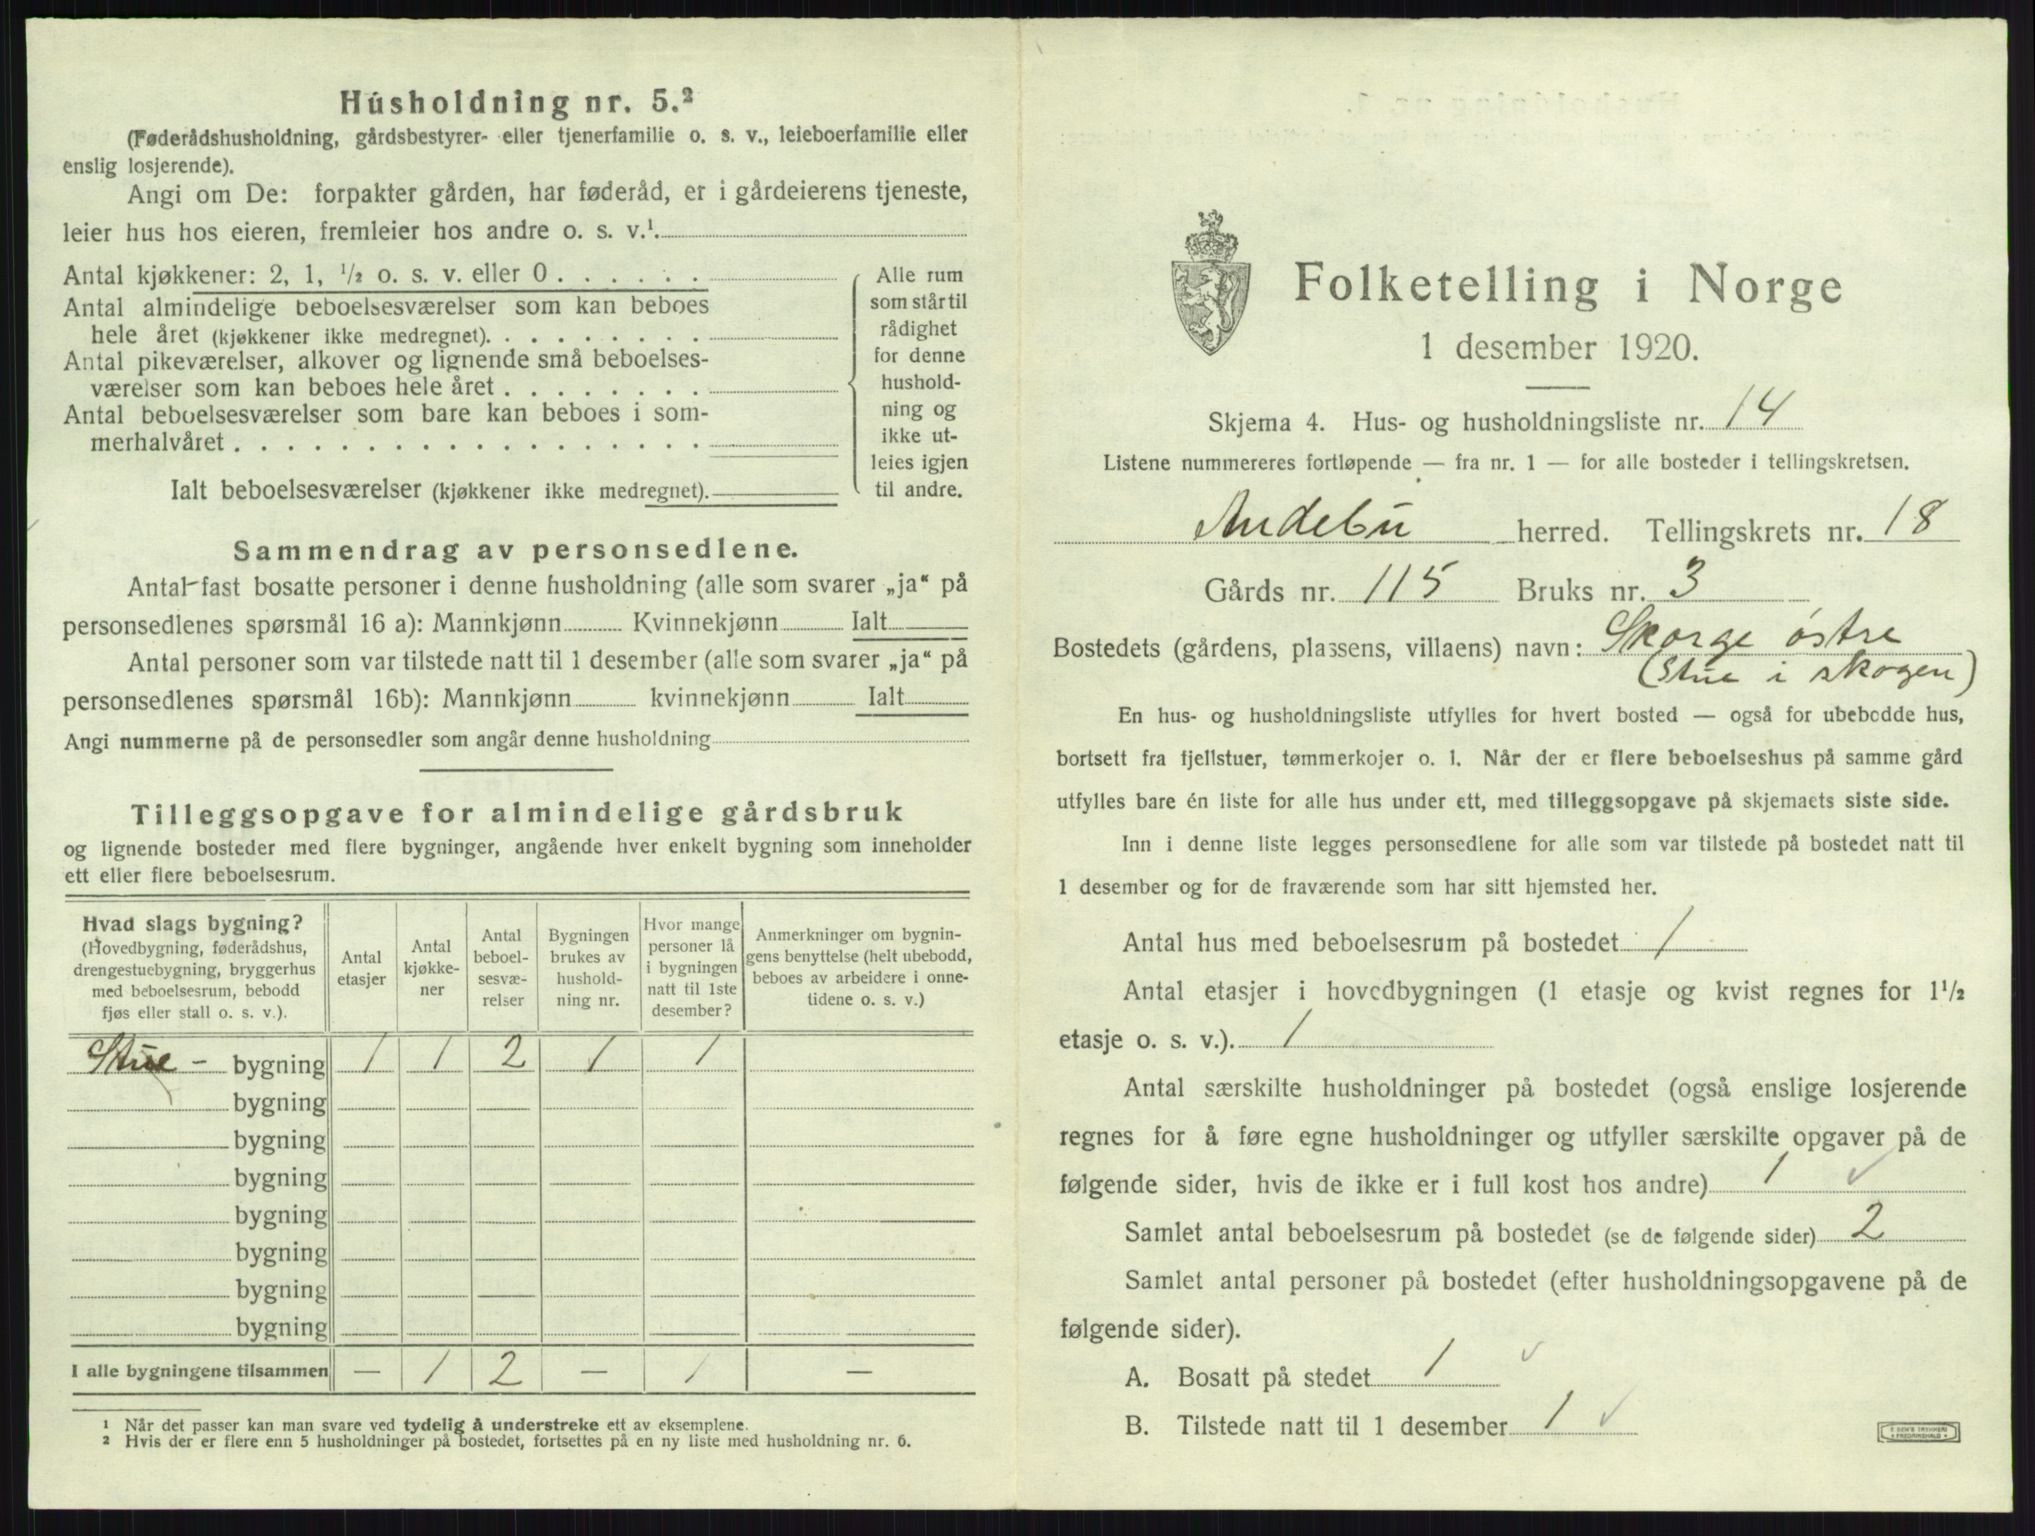 Husholdning nr. 5.²
(Føderådshusholdning, gårdsbestyrer- eller tjenerfamilie o. s. v., leieboerfamilie eller
enslig losjerende).
Angi om De: forpakter gården, har føderåd, er i gårdeierens tjeneste,
leier hus hos eieren, fremleier hos andre o. s. v.¹.
Antal kjøkkener: 2, 1, ½ o. s. v. eller 0 . . . . . .
Antal almindelige beboelsesværelser som kan beboes
hele året (kjøkkener ikke medregnet). . . . . . . . .
Antal pikeværelser, alkover og lignende små beboelses-
værelser som kan beboes hele året . . . . . . . .
Antal beboelsesværelser som bare kan beboes i som-
merhalvåret . . . . . . . . . . . . . . . . . .
Ialt beboelsesværelser (kjøkkener ikke medregnet).
Alle rum
som står til
rådighet
for denne
hushold-
ning og
ikke ut-
leies igjen
til andre.
Sammendrag av personsedlene.
Antal fast bosatte personer i denne husholdning (alle som svarer „ja“ på
personsedlenes spørsmål 16 a): Mannkjønn Kvinnekjønn Ialt
Antal personer som var tilstede natt til 1 desember (alle som svarer „ja“ på
personsedlenes spørsmål 16b): Mannkjønn kvinnekjønn Ialt
Angi nummerne på de personsedler som angår denne husholdning
Tilleggsopgave for almindelige gårdsbruk
og lignende bosteder med flere bygninger, angående hver enkelt bygning som inneholder
ett eller flere beboelsesrum.
Hvad slags bygning?
(Hovedbygning, føderådshus,
drengestuebygning, bryggerhus
med beboelsesrum, bebodd
fjøs eller stall o. s. v.).
Antal
etasjer
Antal
kjøkke-
ner
Antal
beboel-
sesvæ-
relser
Bygningen
brukes av
hushold-
ning nr.
Hvor mange
personer lå
i bygningen
natt til 1ste
desember?
Anmerkninger om bygnin-
gens benyttelse (helt ubebodd,
beboes av arbeidere i onne-
tidene o. s. v.)
Stue - bygning 1 1 2 1 1
bygning
bygning
bygning
bygning
bygning
bygning
bygning
I alle bygningene tilsammen — 1 2 — 1 —
¹ Når det passer kan man svare ved tydelig å understreke ett av eksemplene.
² Hvis der er flere enn 5 husholdninger på bostedet, fortsettes på en ny liste med husholdning nr. 6.
Folketelling i Norge
1 desember 1920.
Skjema 4. Hus- og husholdningsliste nr. 14
Listene nummereres fortløpende — fra nr. 1 — for alle bosteder i tellingskretsen.
Andebu herred. Tellingskrets nr. 18
Gårds nr. 115 Bruks nr. 3
Bostedets (gårdens, plassens, villaens) navn: Skorge østre
(Stue i skogen)
En hus- og husholdningsliste utfylles for hvert bosted — også for ubebodde hus,
bortsett fra fjellstuer, tømmerkojer o. l. Når der er flere beboelseshus på samme gård
utfylles bare én liste for alle hus under ett, med tilleggsopgave på skjemaets siste side.
Inn i denne liste legges personsedlene for alle som var tilstede på bostedet natt til
1 desember og for de fraværende som har sitt hjemsted her.
Antal hus med beboelsesrum på bostedet 1
Antal etasjer i hovedbygningen (1 etasje og kvist regnes for 1½
etasje o. s. v.). 1
Antal særskilte husholdninger på bostedet (også enslige losjerende
regnes for å føre egne husholdninger og utfyller særskilte opgaver på de
følgende sider, hvis de ikke er i full kost hos andre) 1 ✓
Samlet antal beboelsesrum på bostedet (se de følgende sider) 2
Samlet antal personer på bostedet (efter husholdningsopgavene på de
følgende sider).
A. Bosatt på stedet 1 ✓
B. Tilstede natt til 1 desember 1 ✓